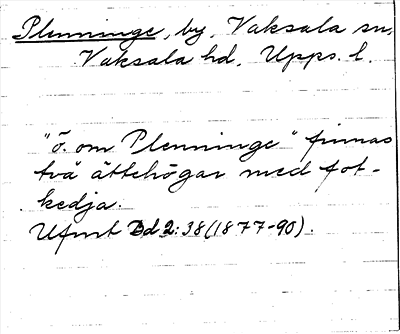 Plenninge, by, Vaksala sn,
Vaksala hd. Upps. l.
"ö. om Plenninge" finnas
två ättehögar med fot-
kedja.
Ufmt Bd 2:38 (1877-90).